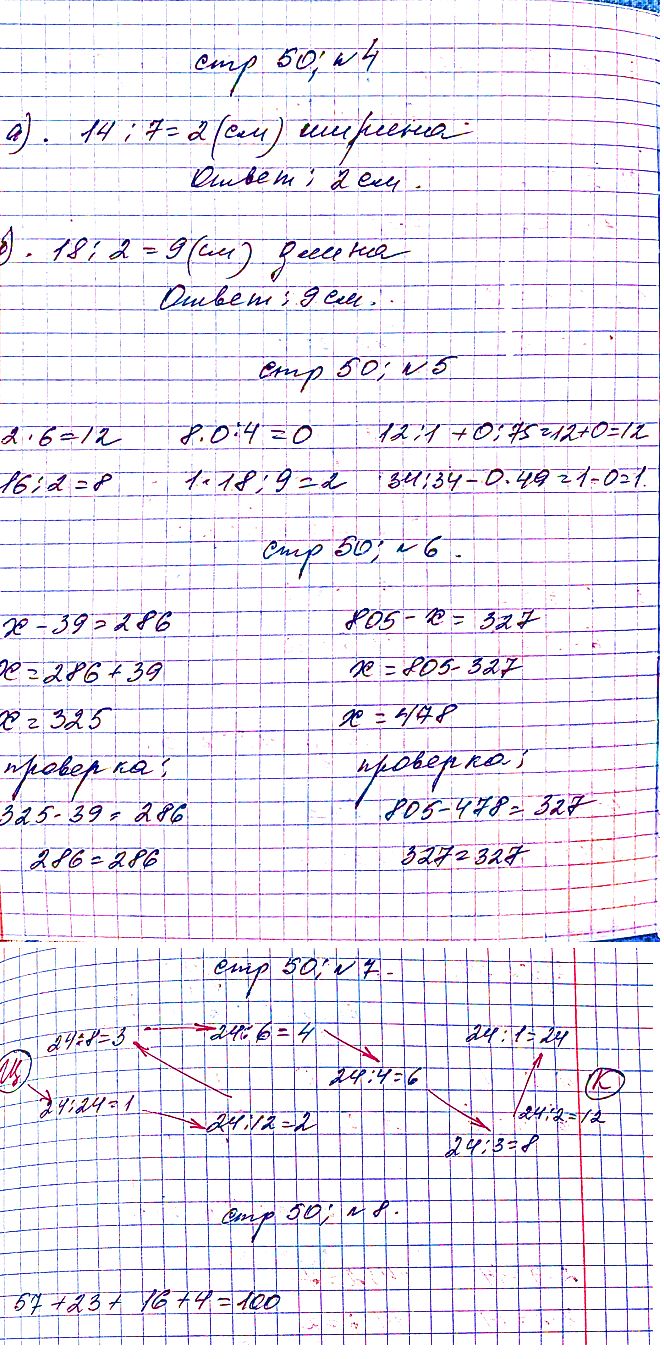 стр 50; №4
а). 14 : 7 = 2 (см) ширина
Ответ: 2 см.
б). 18 : 2 = 9 (см) длина
Ответ: 9 см.
стр 50; №5
2 · 6 = 12    8 · 0 : 4 = 0    12 : 1 + 0 : 75 = 12 + 0 = 12
16 : 2 = 8    1 · 18 : 9 = 2    34 : 34 - 0 · 49 = 1 - 0 = 1.
стр 50; №6.
x - 39 = 286    805 - x = 327
x = 286 + 39    x = 805 - 327
x = 325    x = 478
проверка:    проверка:
325 - 39 = 286    805 - 478 = 327
286 = 286    327 = 327
стр 50; №7.
24 : 8 = 3    24 : 6 = 4    24 : 1 = 24
Ц    24 : 4 = 6    К
24 : 24 = 1    24 : 12 = 2    24 : 2 = 12
24 : 3 = 8
стр 50; №8.
57 + 23 + 16 + 4 = 100